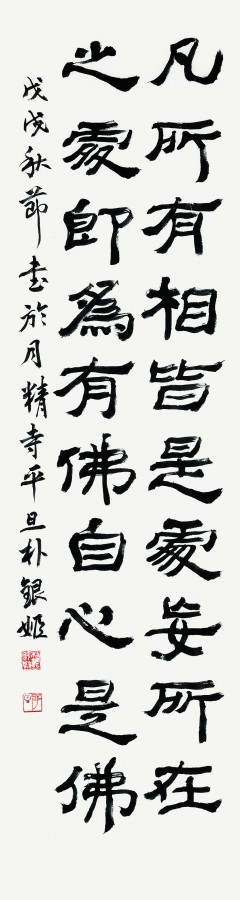 凡所有相皆是虛妄所在
之處即爲有佛自心是佛
戊戌秋節書於月精寺平旦朴銀姬